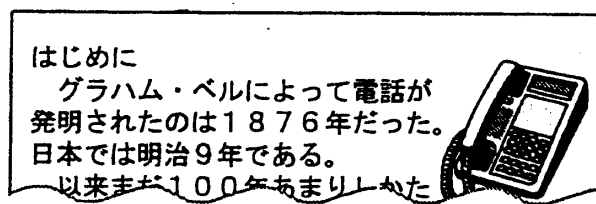 はじめに
グラハム・ベルによって電話が
発明されたのは1876年だった。
日本では明治9年である。
以来まだ100年あまりしかた